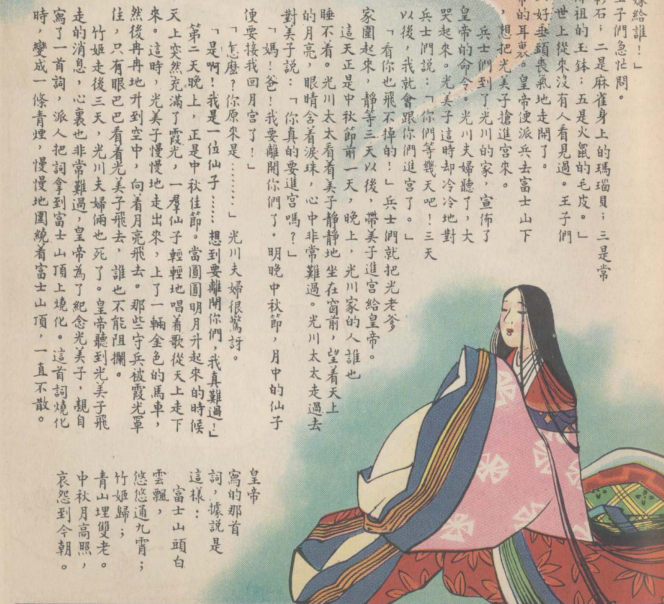 嫁給誰！」
王子們急忙問。
彩石；二是麻雀身上的瑪瑙貝；三是常
佛祖的王鉢；五是火鼠的毛皮。」
世上從來沒有人看見過。王子們
好垂頭喪氣地走開了。
帝的耳裏。皇帝便派兵去富士山下
想把光美子搶進宮來。
兵士們到了光川的家，宣佈了
皇帝的命令。光川夫婦聽了，大
哭起來。光美子這時却冷冷地對
兵士們說：「你們等幾天吧！三天
以後，我就會跟你們進宮了。」
「看你也飛不掉的！」兵士們就把光老爹
家圍起來，靜等三天以後，帶美子進宮給皇帝。
這天正是中秋節前一天，晚上，光川家的人誰也
睡不着。光川太太看看美子靜靜地坐在窗前，望着天上
的月亮，眼睛含着淚珠，心中非常難過。光川太太走過去
對美子說：「你真的要進宮嗎？」
「媽！爸！我要離開你們了。明晚中秋節，月中的仙子
便要接我回月宮了！」
「怎麼？你原來是……」光川夫婦很驚訝。
「是啊！我是一位仙子……想到要離開你們，我真難過！」
第二天晚上，正是中秋佳節。當圓圓明月升起來的時候
天上突然充滿了霞光，一羣仙子輕輕地唱着歌從天上走下
來。這時，光美子慢慢地走出來，上了一輛金色的馬車，
然後冉冉地升到空中，向着月亮飛去。那些守兵被霞光罩
住，只有眼巴巴看着光美子飛去，誰也不能阻攔。
竹姬走後三天，光川夫婦倆也死了。皇帝聽到光美子飛
走的消息，心裏也非常難過，皇帝為了紀念光美子，親自
寫了一首詞，派人把詞拿到富士山頂上燒化。這首詞燒化
時，變成一條青煙，慢慢地圍繞着富士山頂，一直不散。
皇帝
寫的那首
詞，據說是
這樣：
富士山頭白
雲飄，
悠悠通九霄；
竹姬歸；
青山埋雙老。
中秋月高照，
哀怨到今朝。